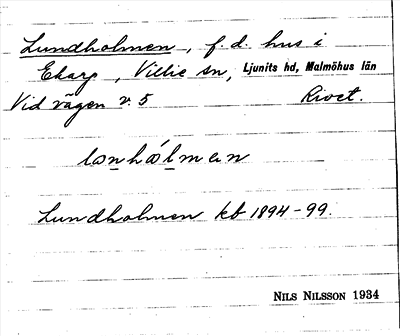 Lundholmen, f. d. hus i
Ekarp, Villie sn, Ljunits hd, Malmöhus län
Vid vägen v. 5 Rivet.
lɔnhålmen
Lundholmen kb 1894-99.
NILS NILSSON 1934